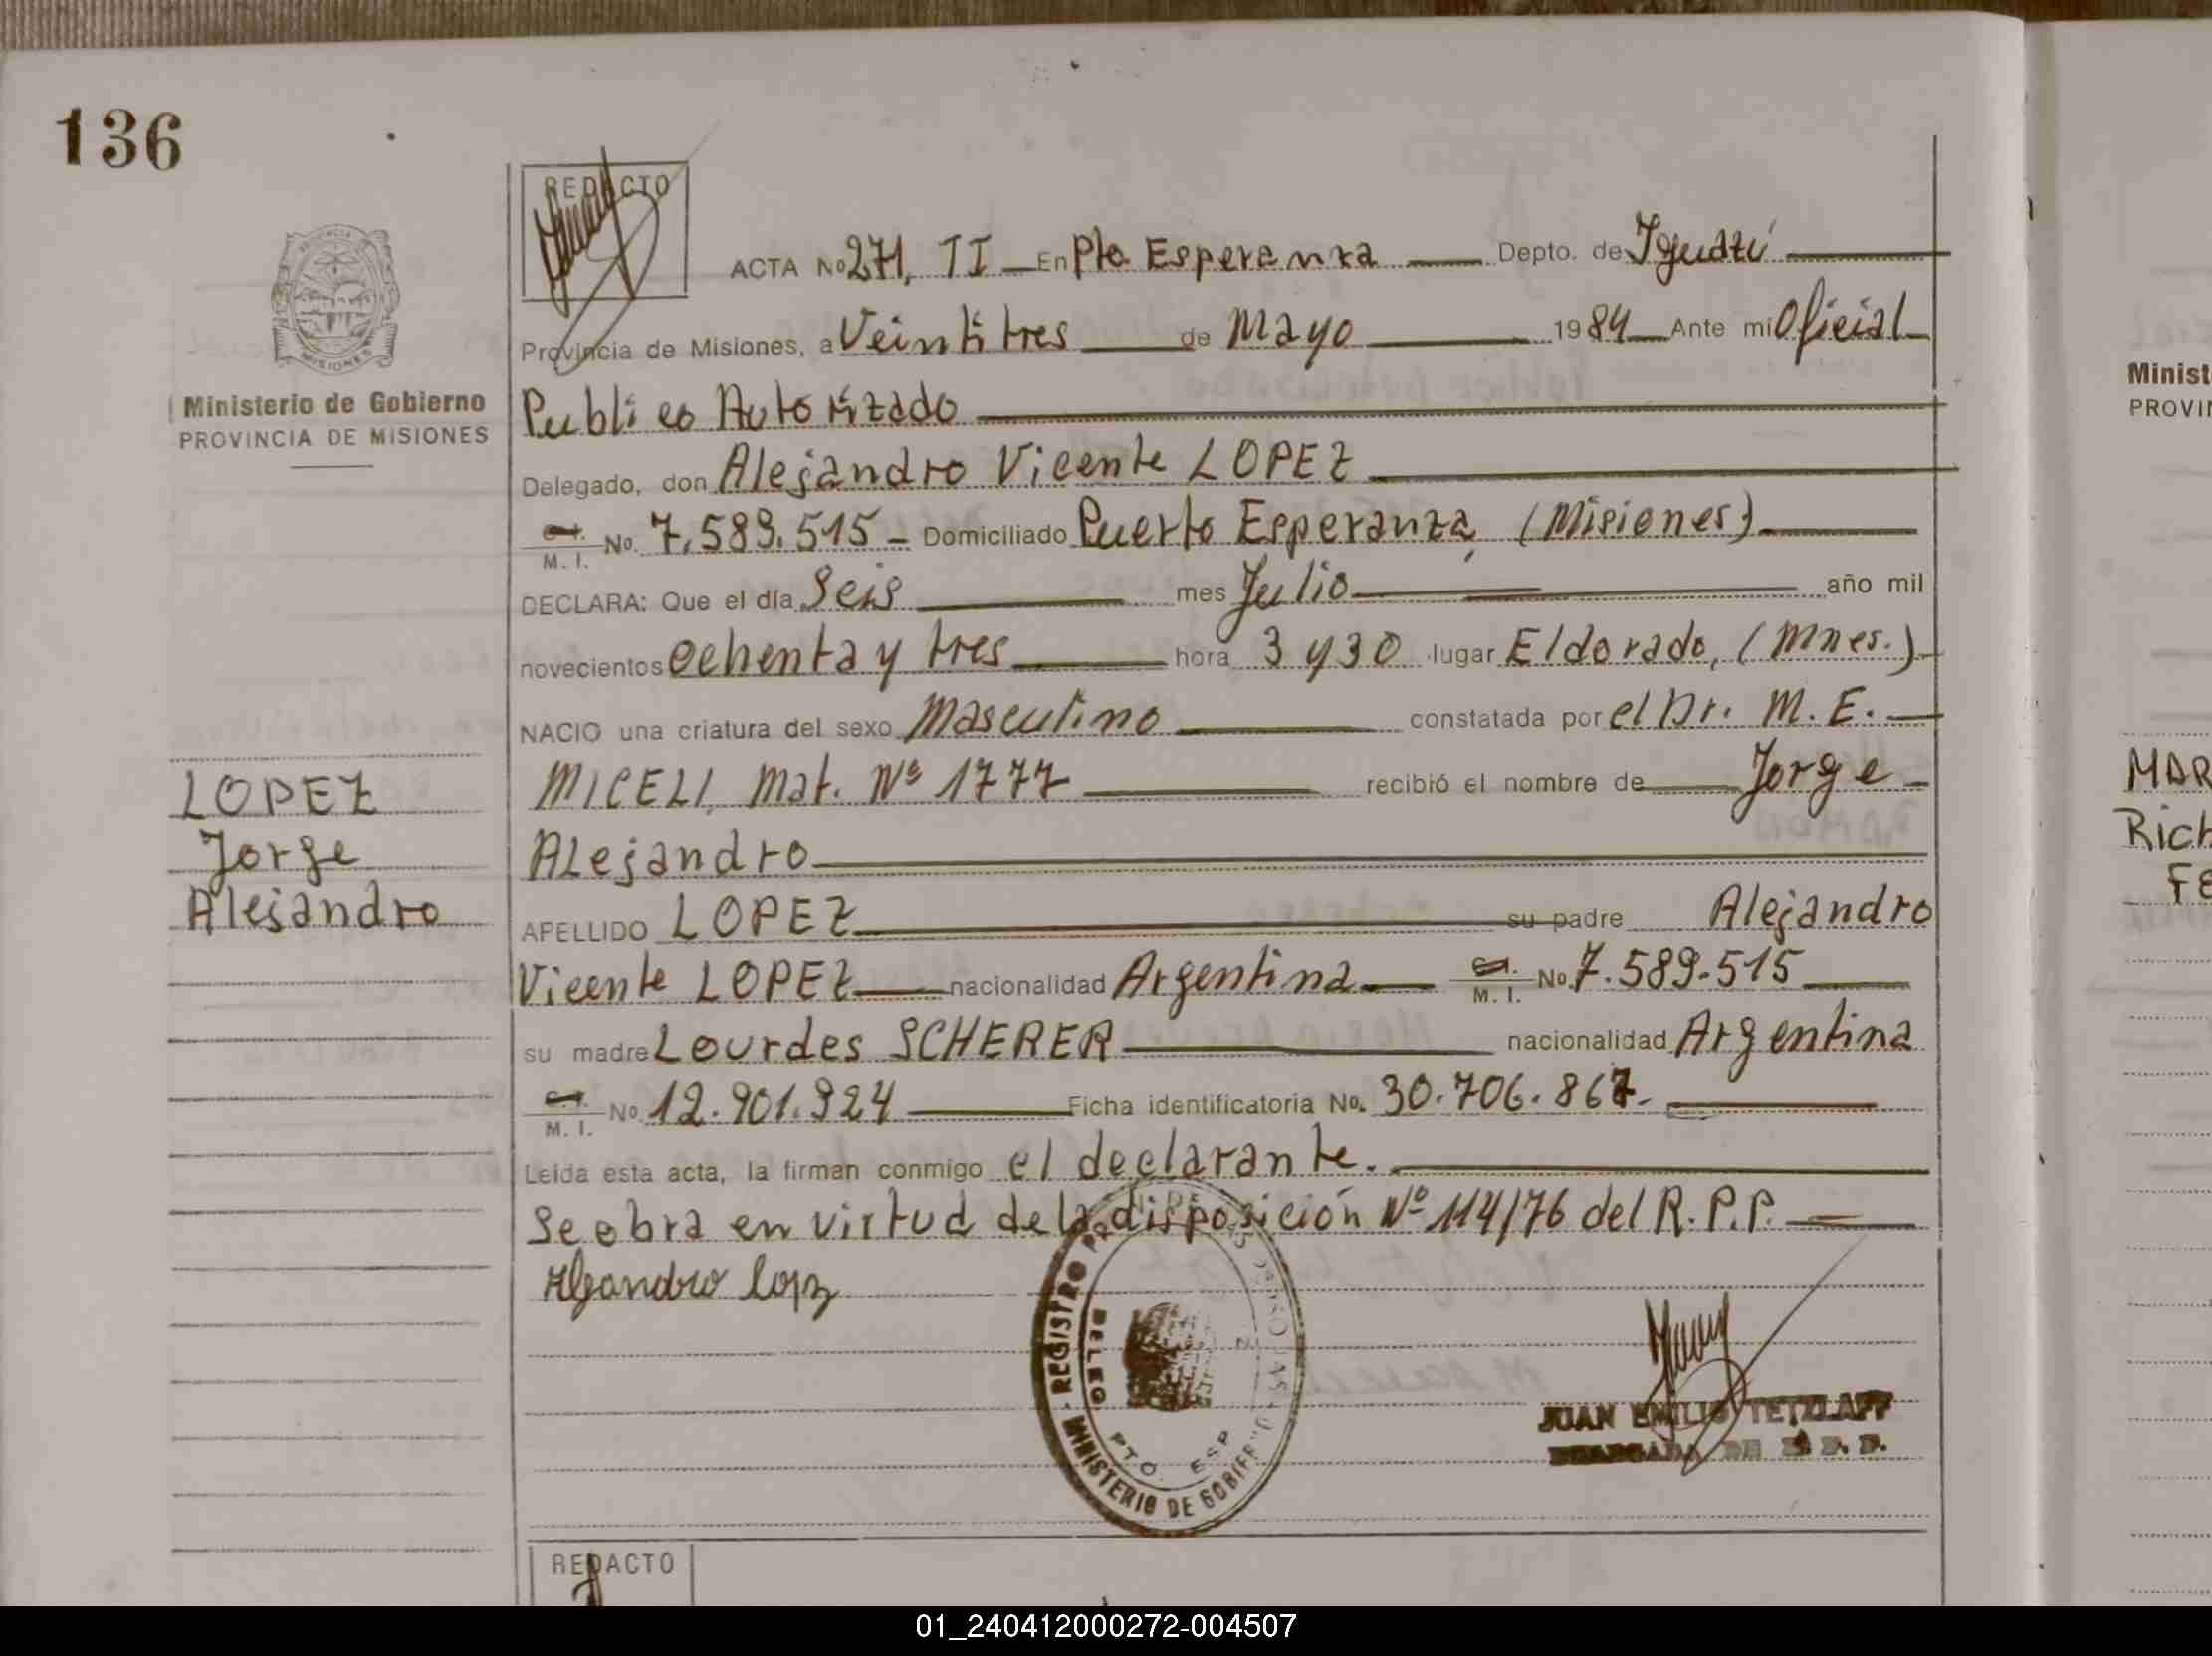 136
REDACTO
ACTA No 271, TI En Pto Esperanza Depto. de Iguazú
Provincia de Misiones, a Veintitres de Mayo 1984 Ante mi Oficial
Ministerio de Gobierno
PROVINCIA DE MISIONES
MISIONES
Publico Autorizado
Delegado, don Alejandro Vicente LOPEZ
C.I. M. I. No. 7.589.515 - Domiciliado Puerto Esperanza, (Misiones)
DECLARA: Que el día Seis mes Julio año mil
novecientos ochenta y tres hora 3 y 30 lugar Eldorado, (Mnes.)
NACIO una criatura del sexo Masculino constatada por el Dr. M. E.
MICELI, Mat. Nº 1777 recibió el nombre de Jorge
Alejandro
LOPEZ
Jorge
Alejandro
APELLIDO LOPEZ su padre Alejandro
Vicente LOPEZ nacionalidad Argentina C.I. M. I. No. 7.589.515
su madre Lourdes SCHERER nacionalidad Argentina
C.I. M. I. No. 12.901.924 Ficha identificatoria No. 30.706.867-
Leída esta acta, la firman conmigo el declarante.
Se obra en virtud de la disposición Nº 114/76 del R.P.P.
Alejandro Lopez
MINISTERIO DE GOBIER
REGISTRO
DELEG
PTO. ESP
JUAN EMILIO TETZLAFF
REDACTO
Minist
PROVIN
MAR
Rich
FE
01_240412000272-004507